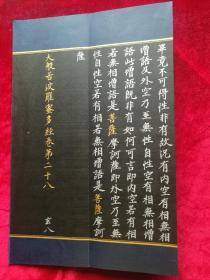 畢竟不可得性非有故況有內空有相無相
增語及外空乃至無性自性空有相無相增
語此增語既非有如何可言即內空若有相
若無相增語是菩薩摩訶薩即外空乃至無
性自性空若有相若無相增語是菩薩摩訶
薩
大般若波羅蜜多經卷第二十八
玄八